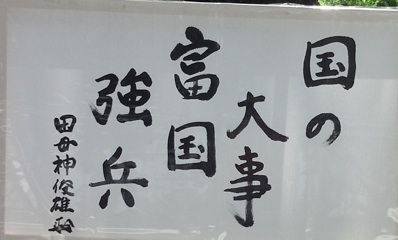 国の
大事
富国
強兵
田母神俊雄